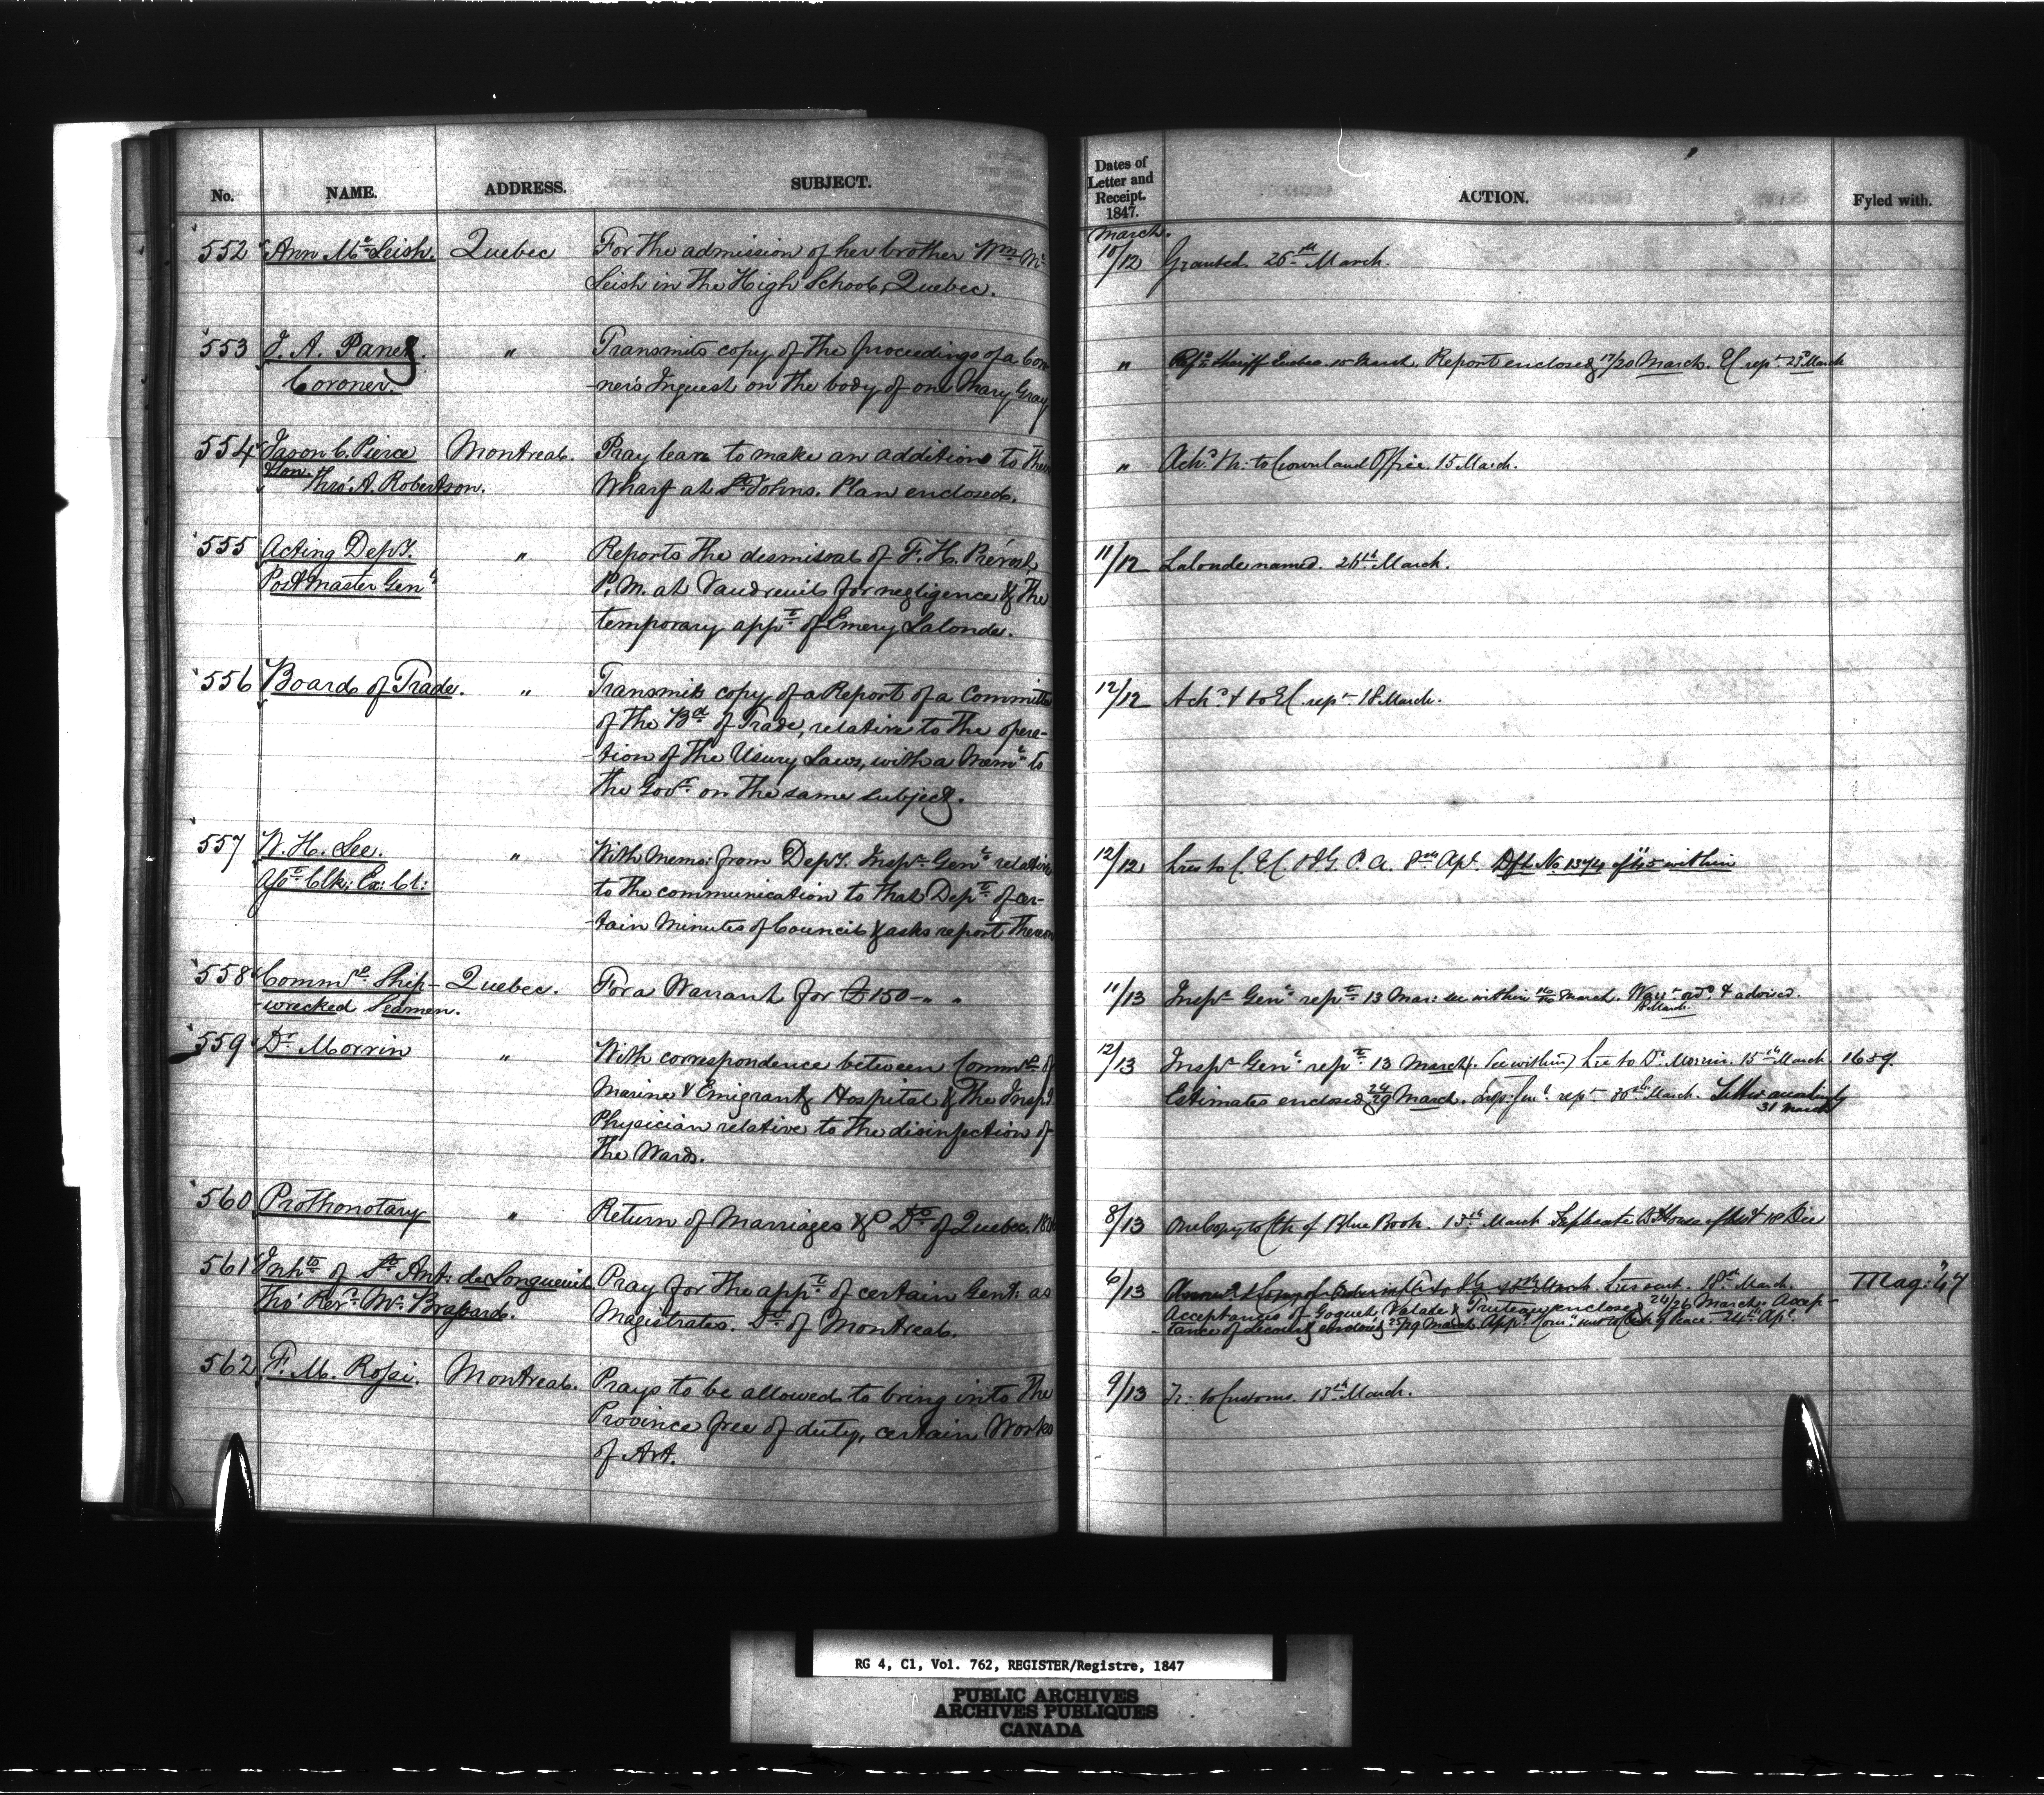 No. NAME. ADDRESS. SUBJECT.
552 Ann Mc Leish. Quebec For the admission of her brother Wm Mc
Leish in the High School, Quebec.
553 J. A. Panet. " Transmits copy of the proceedings of a Coro
Coroner. -ner's Inquest on the body of one Mary Gray
554 Jason C. Pierce Montreal. Pray leave to make an addition to their
Hon.
Thro' A. Robertson. Wharf at St Johns. Plan enclosed.
555 Acting Depy. " Reports the dismissal of F. H. Prévost
Postmaster Genl P. M. at Vaudreuil for negligence & the
temporary appt of Emery Lalonde.
556 Board of Trade. " Transmits copy of a Report of a Committee
of the Bd of Trade, relative to the opera-
-tion of the Usury Laws, with a Meml to
the Govr on the same subject.
557 W. H. Lee. " With Memo: from Depy. Inspr Genl relative
Asst Clk: Ex: Cl: to the communication to that Dept of cer-
-tain Minutes of Council & asks report thereon
558 Commrs Ship- Quebec. For a Warrant for £150 - " "
-wrecked Seamen.
559 Dr Morrin " With correspondence between Commrs of
Marine & Emigrant Hospital & the Inspg
Physician relative to the disinfection of
the Wards.
560 Prothonotary " Return of Marriages &c Do of Quebec. 18
561 Inhts of St Ant: de Longueuil Pray for the appt of certain Gent: as
Thro' Revd Mr Brassard. Magistrates. Dt of Montreal.
562 F. M. Rossi. Montreal. Prays to be allowed to bring into the
Province free of duty, certain Works
of Art.
Dates of
Letter and
Receipt.
1847.
ACTION. Fyled with.
March.
10/12 Granted. 26th March.
" Refd to Sheriff Quebec 15 March. Report enclosed 17/20 March. EC rept 23d March
" Ackd Tr: to Crown land Office. 15 March.
11/12 Lalonde named. 26th March.
12/12 Ackd & to EC rept 18 March.
12/12 Lres to C. EC & IG. P. A. 8th Apl. Dft No 1374 of 45 within
11/13 Inspr Genl rept 13 Mar: see within March. Warrt ordd & advised.
18 March.
12/13 Inspr Genl rept 13 March (see within) Lre to Dr Morrin. 15th March. 1659.
Estimates enclosed 24/29 March. Insp: Genl rept 30th March. Letter accordingly
31 March
8/13 One Copy to Ch of Blue Book. 15th March Triplicate House of 18 Dec
6/13 March. Lres sent. 18th March. Mag: 47
Acceptances of Goguet, Valade & Truteau enclosed 24/26 March. Accep-
-tance of enclosed 25/29 March. Appd of Peace. 24th Apl.
9/13 Tr: to Customs. 15th March.
RG 4, C1, Vol. 762, REGISTER/Registre, 1847
PUBLIC ARCHIVES
ARCHIVES PUBLIQUES
CANADA